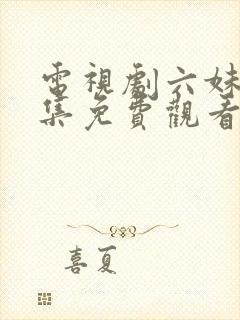 電視劇六妹
集免費觀看
喜夏